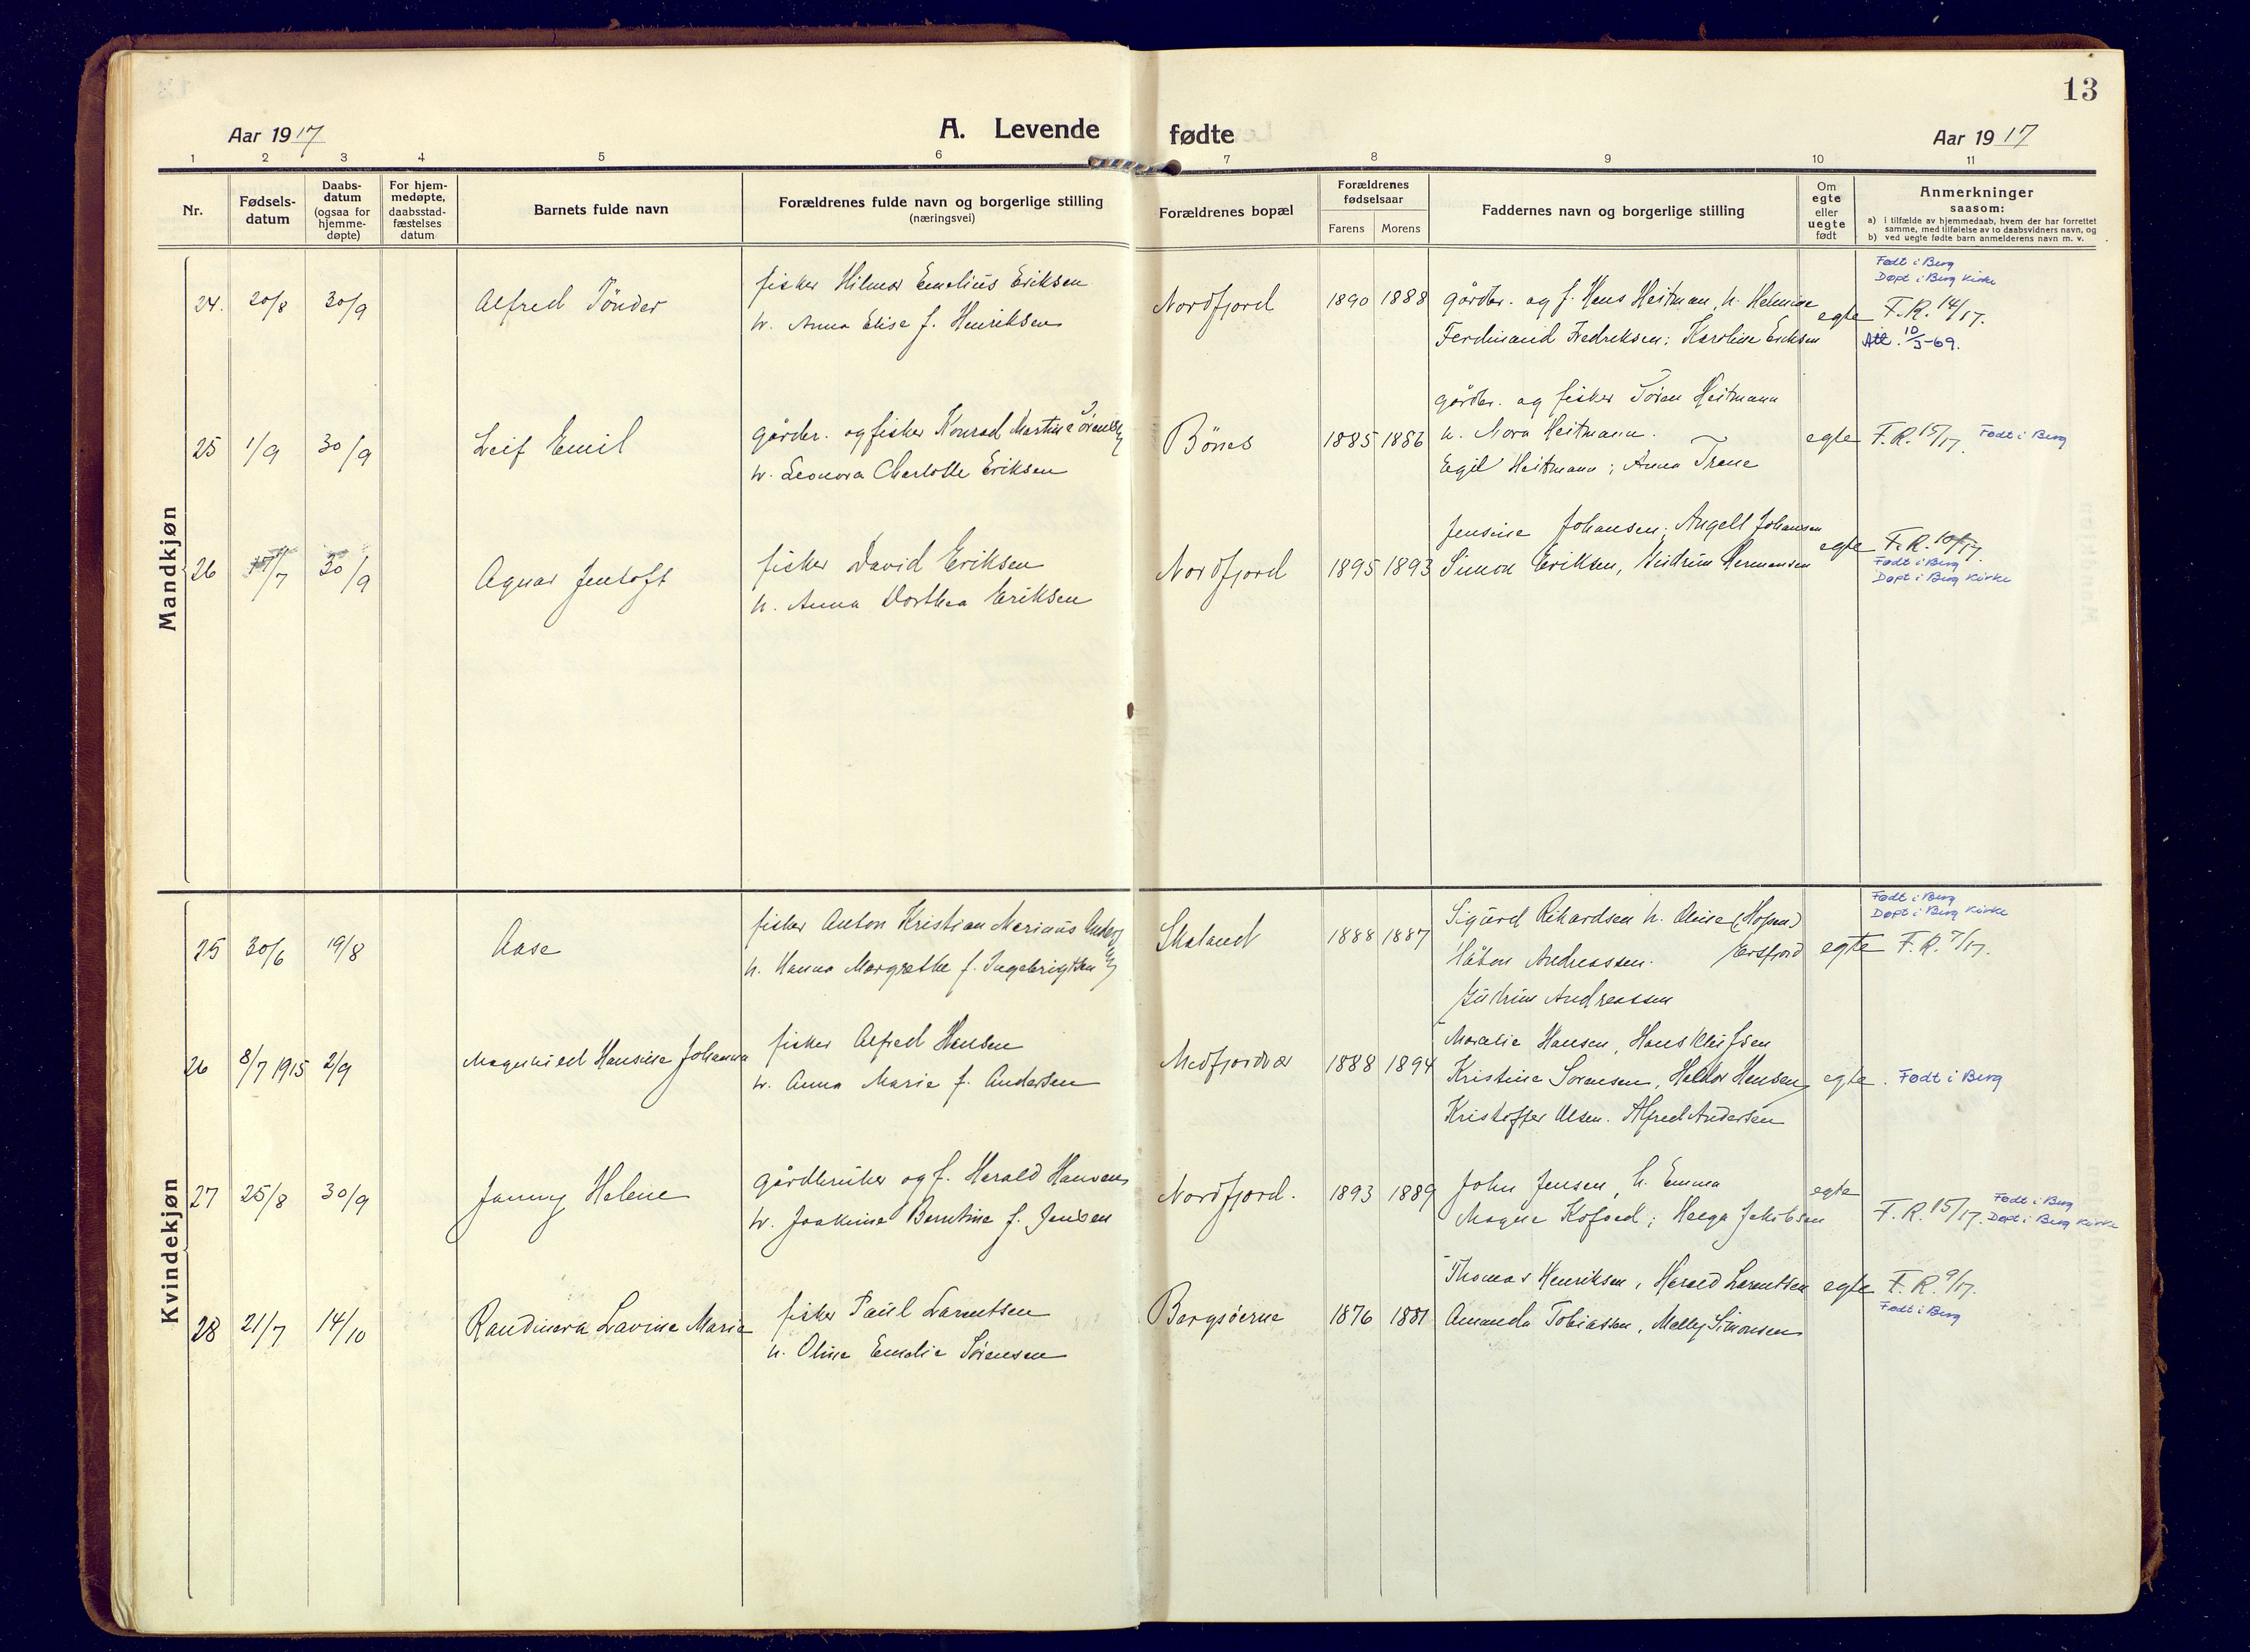 13
Aar 1917
A. Levende fødte
Aar 1917
1 2 3 4 5 6 7 8 9 10 11
Nr.
Fødsels-
datum
Daabs-
datum
(ogsaa for
hjemme-
døpte)
For hjem-
medøpte,
daabsstad-
fæstelses
datum
Barnets fulde navn
Forældrenes fulde navn og borgerlige stilling
(næringsvei)
Forældrenes bopæl
Forældrenes
fødselsaar
Farens Morens
Faddernes navn og borgerlige stilling
Om
egte
eller
uegte
født
Anmerkninger
saasom:
a) i tilfælde av hjemmedaab, hvem der har forrettet
samme, med tilføielse av to daabsvidners navn, og
b) ved uegte fødte barn anmelderens navn m. v.
Mandkjøn
24. 20/8 30/9 Alfred Tönder
fisker Hilmar Emelius Eriksen
h. Anna Elise f. Henriksen
Nordfjord 1890 1888
gårdbr. og f. Hans Heitman, h. Helmine
Ferdinand Fredriksen; Karoline Eriksen
egte
Født i Berg
Døpt i Berg Kirke
F.R. 14/17.
Att. 10/5-69.
25 1/9 30/9 Leif Emil
gårdbr. og fisker Konrad Martin Sörensen
h. Leonora Charlotte Eriksen
Bönes 1885 1886
gårdbr. og fisker Sören Heitmann
h. Nora Heitmann.
Egil Heitmann; Anna Trane
egte F.R. 15/17. Født i Berg
26 /7 30/9 Agnar Jentoft
fisker David Eriksen
h. Anna Dorthea Eriksen
Nordfjord 1895 1893
Jensine Johansen; Angell Johansen
Simon Eriksen, Gudrun Hermansen
egte F.R. 10/17.
Født i Berg
Døpt i Berg Kirke
Kvindekjøn
25 30/6 19/8 Aase
fisker Anton Kristian Marinus
h. Hanna Margrethe f. Ingebrigtsen
Skaland 1888 1887
Sigurd Rikardsen h. Oluise (Hofsøi)
Håkon Andreassen. Ersfjord
Gudrun Andreassen
egte
Født i Berg
Døpt i Berg Kirke
F.R. 7/17.
26 8/7 1915 2/9 Magnhild Hansine Johanna
fisker Alfred Hansen
h. Anna Marie f. Andersen
Medfjordvær 1888 1894
Maralie Hansen, Hans
Kristine Sörensen, Haldor Hansen
Kristoffer Olsen. Alfred Andersen
egte. Født i Berg
27 25/8 30/9 Janny Helene
gårdbruker og f. Harald Hansen
h. Joakime Berntine f. Jensen
Nordfjord. 1893 1889
John Jensen, h. Emma
Magne Kofoed; Helga Jakobsen
egte
F.R. 15/17. Født i Berg
Døpt i Berg Kirke
28 21/7 14/10 Randinora Lavine Marie
fisker Paul Larentsen
h. Oline Emelie Sörensen
Bergsöerne 1876 1881
Thomas Henriksen, Harald Larentsen
Amanda Tobiassen, Melly Simonsen
egte F.R. 9/17.
Født i Berg